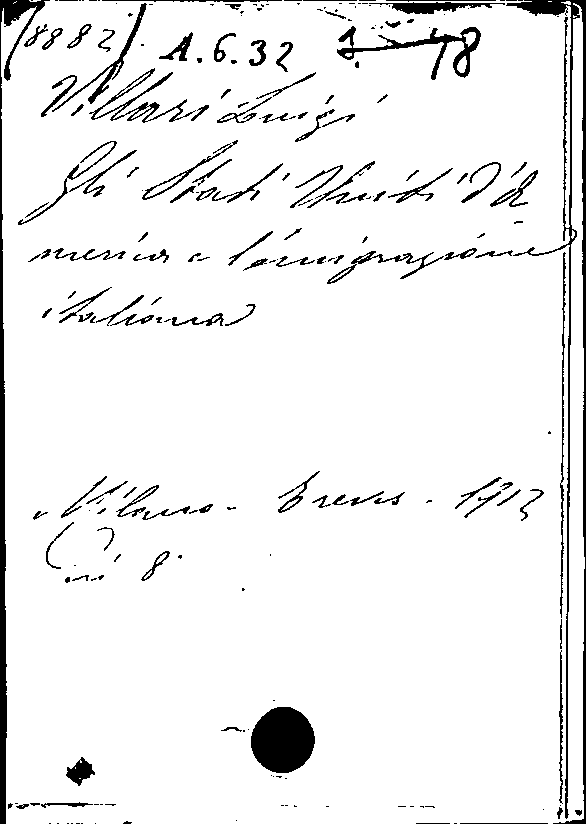 (8882) A.6.32 J. 48
Villari Luigi
Gli Stati Uniti d'A
merica e l'emigrazione
italiana
Milano - Treves - 1912
in 8°